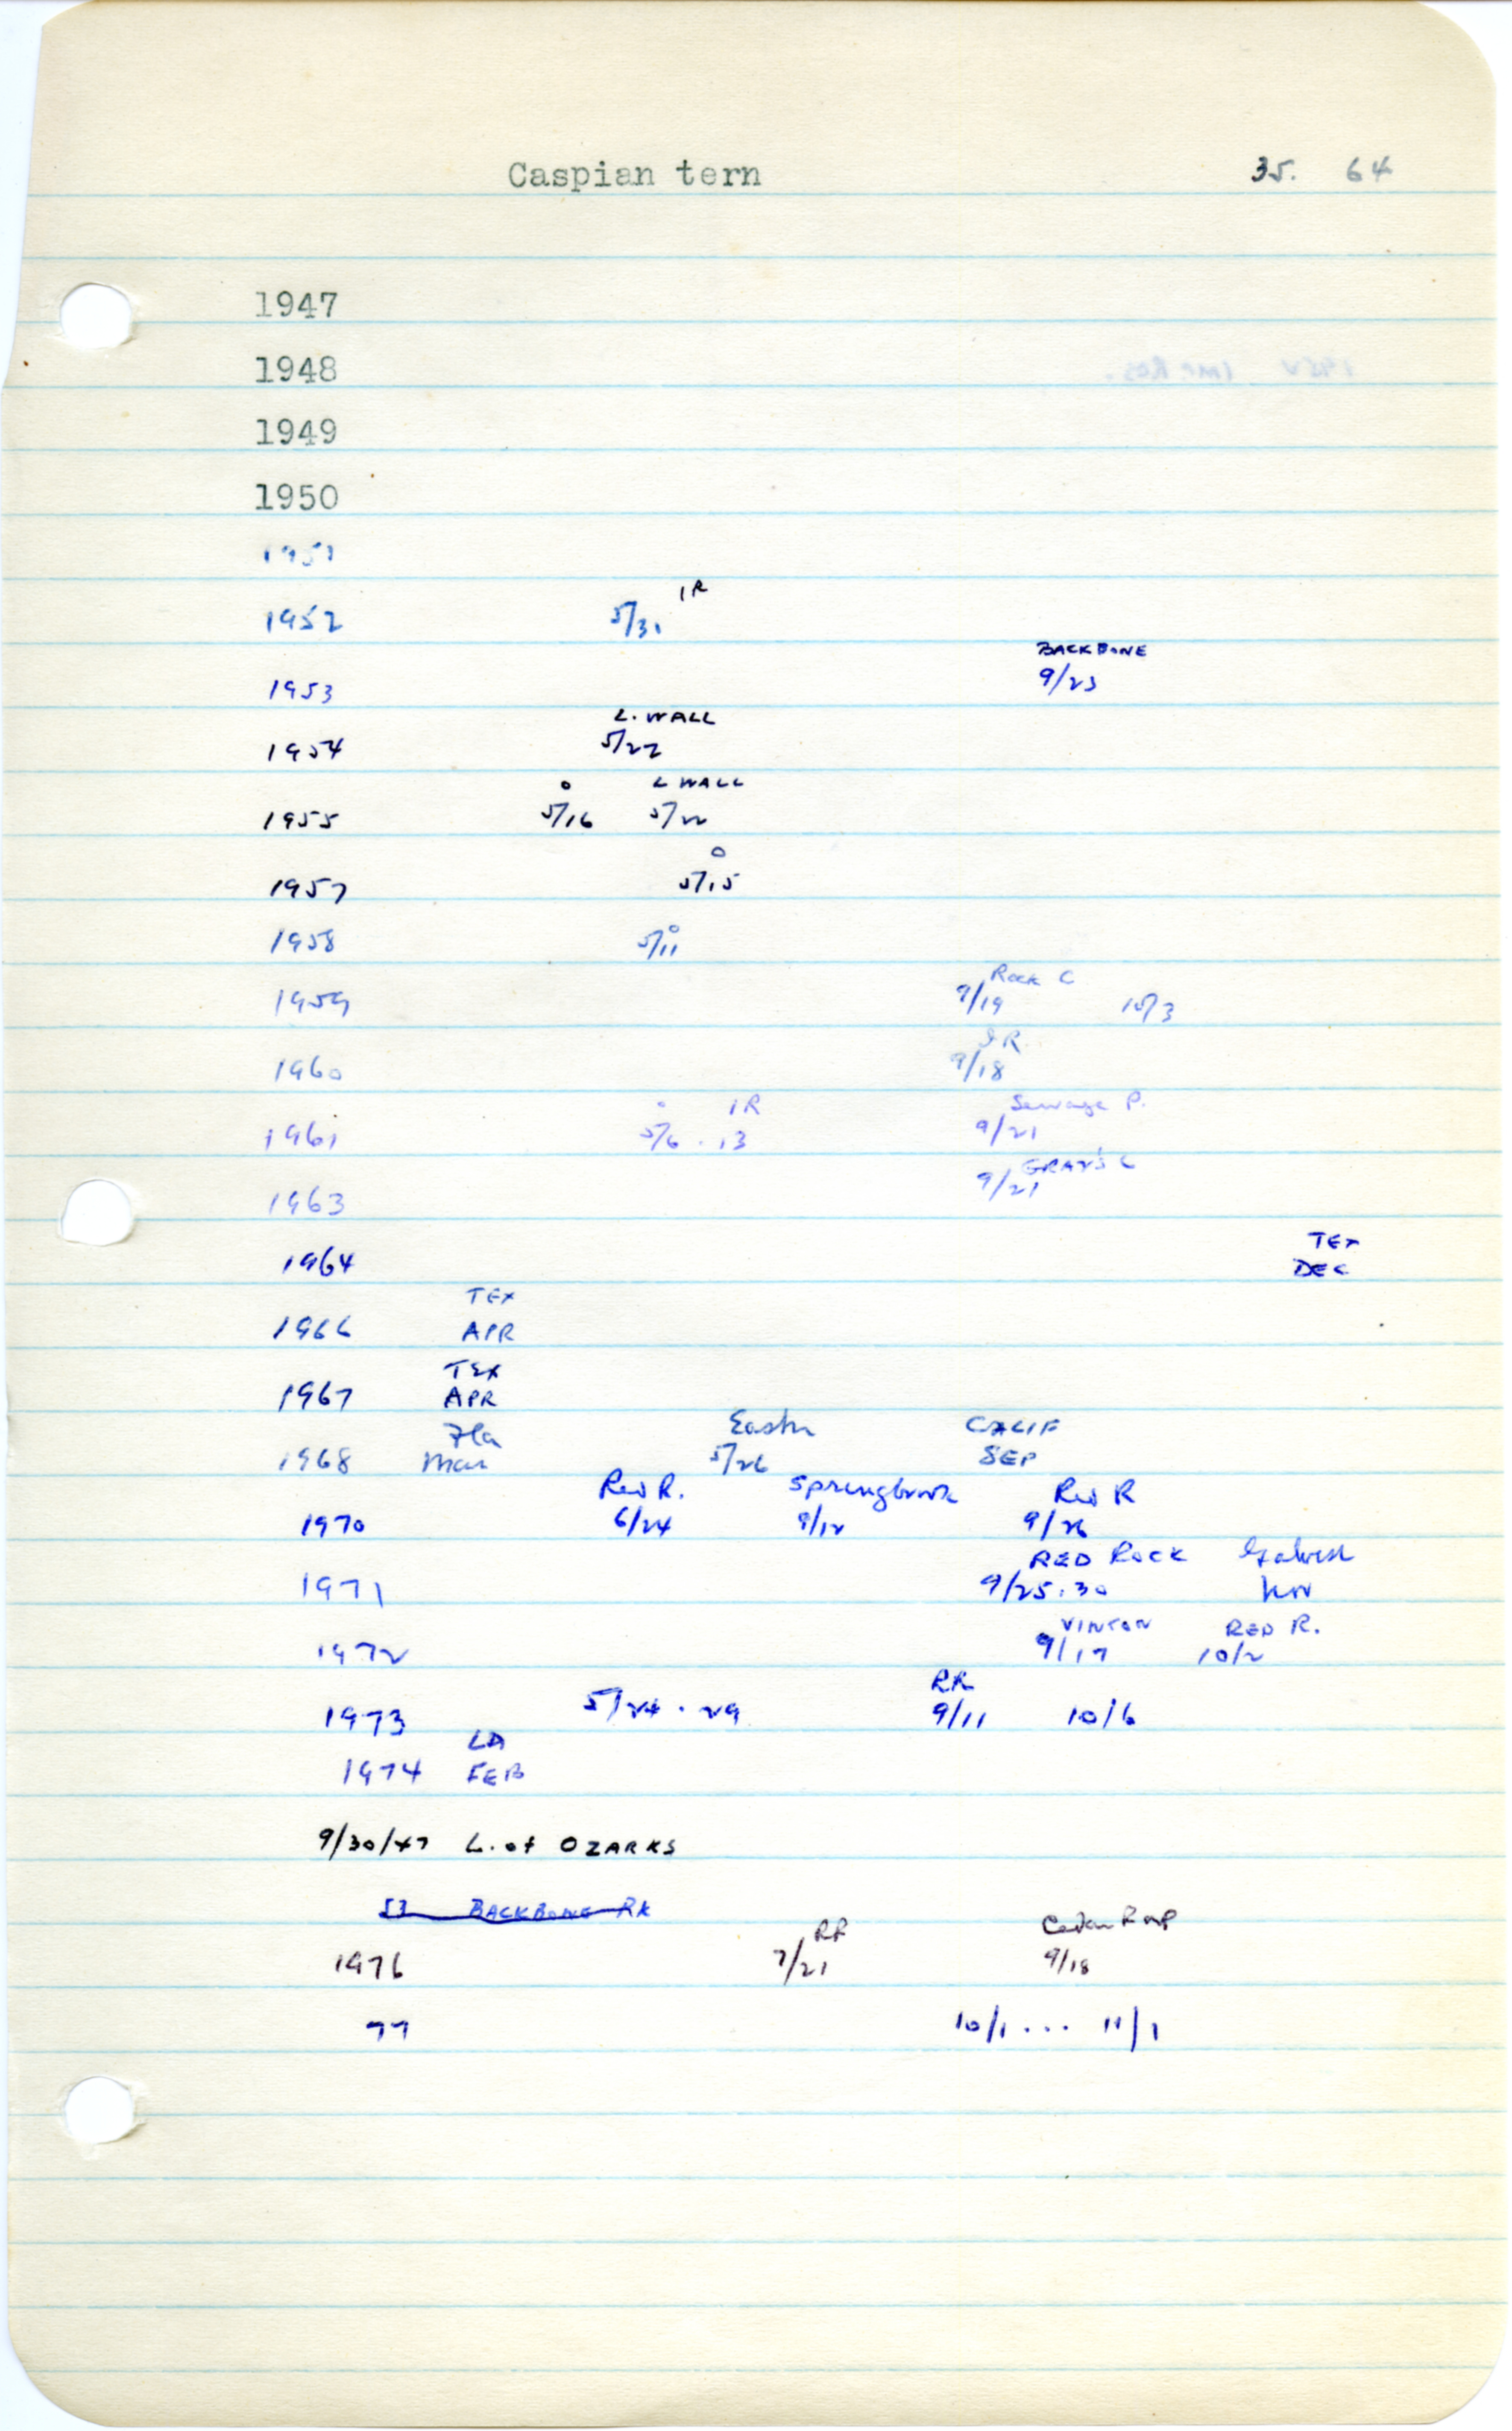 Caspian tern 35. 64
1947
1948
1949
1950
1951
IR
1952 5/31
BACKBONE
1953 9/23
L. WALL
1954 5/22
o L WALL
1955 5/16 5/22
o
1957 5/15
o
1958 5/11
Rock C
1959 9/19 10/3
IR.
1960 9/18
o IR Sewage P.
1961 5/6 . 13 9/21
GRAY'S L
1963 9/21
TEX
1964 DEC
TEX
1966 APR
TEX
1967 APR
Fla CALIF
1968 Mar 5/26 SEP
Red R. Springbrook Red R
1970 6/24 9/12 9/26
RED ROCK
1971 9/25.30
VINTON RED R.
1972 9/17 10/2
RR
1973 5/24 . 29 9/11 10/6
LA
1974 FEB
9/30/47 L. of OZARKS
53 BACKBONE RK
RR Cedar Rap
1976 7/21 9/18
77 10/1 ... 11/1